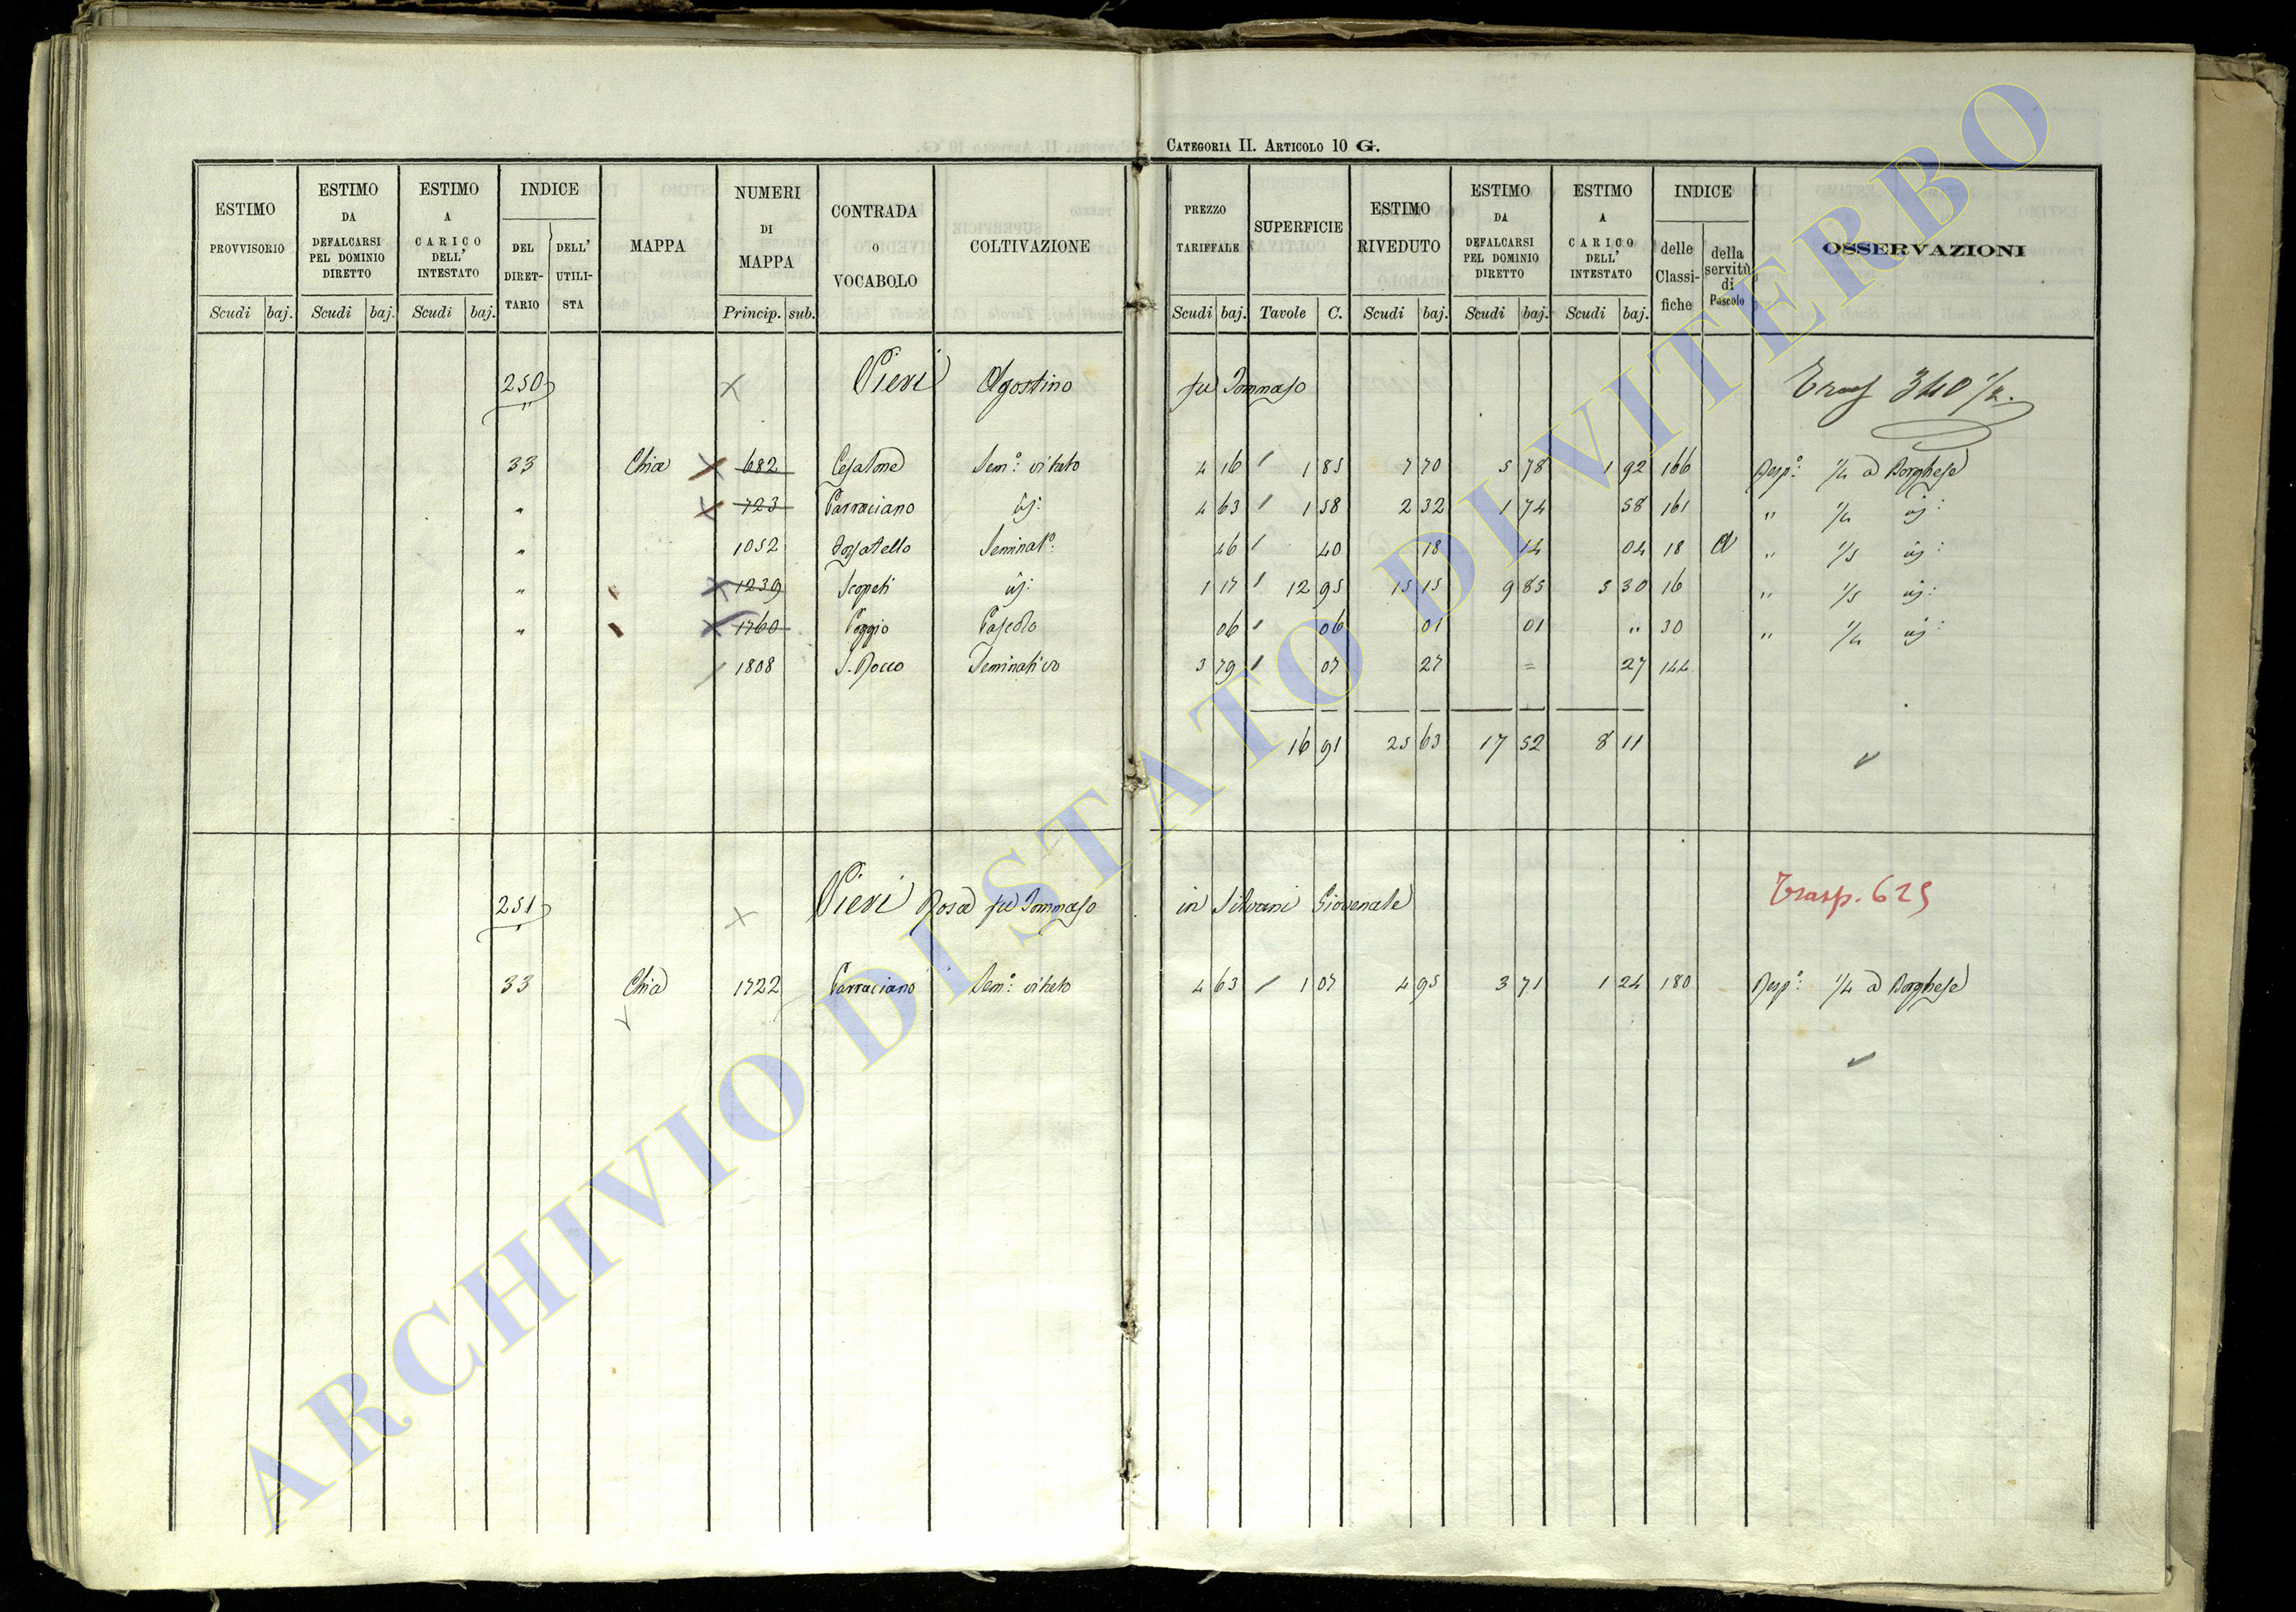 CATEGORIA II. ARTICOLO 10 G.
ESTIMO PROVVISORIO Scudi baj.
ESTIMO DA DEFALCARSI PEL DOMINIO DIRETTO Scudi baj.
ESTIMO A CARICO DELL' INTESTATO Scudi baj.
INDICE DEL DIRET-TARIO DELL' UTILI-STA
MAPPA
NUMERI DI MAPPA Princip. sub.
CONTRADA o VOCABOLO
COLTIVAZIONE
PREZZO TARIFFALE Scudi baj.
SUPERFICIE Tavole C.
ESTIMO RIVEDUTO Scudi baj.
ESTIMO DA DEFALCARSI PEL DOMINIO DIRETTO Scudi baj.
ESTIMO A CARICO DELL' INTESTATO Scudi baj.
INDICE delle Classi-fiche della servitù di Pascolo
OSSERVAZIONI
250 Pieri Agostino fu Tommaso 340 1/2
33 Chia 682 Cesalone Sem.o vitato 4 16 1 85 7 70 5 78 1 92 166 Resp.o 1/4 a Borghese
" 723 Parraciano id: 4 63 1 58 2 32 1 74 58 161 " 1/4 id:
" 1052 Seminat.o 46 40 18 14 04 18 A " 1/5 id:
" 1239 Scopeti id: 1 17 12 95 15 15 9 85 5 30 16 " 1/5 id:
" 1760 Poggio Pascolo 06 06 01 01 " 30 " 1/4 id:
1808 S. Rocco Seminativo 3 79 07 27 = 27 144
16 91 25 63 17 52 8 11
251 Pieri Rosa fu Tommaso in Silvani Giovenale Trasp. 625
33 Chia 1722 Parraciano Sem.o vitato 4 63 1 07 4 95 3 71 1 24 180 Resp.o 1/4 a Borghese
ARCHIVIO DI STATO DI VITERBO